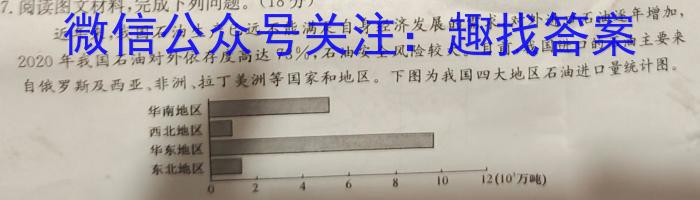 7.阅读图文材料,完成下列问题。(18分)
微信公众号关注:趣找答案
2020年我国石油对外依存度高达73%,石油安全风险较大。目前,我国进口的石油主要来
自俄罗斯及西亚、非洲、拉丁美洲等国家和地区。下图为我国四大地区石油进口量统计图。
华南地区
西北地区
华东地区
东北地区
0 2 4 6 8 10 12(10³万吨)